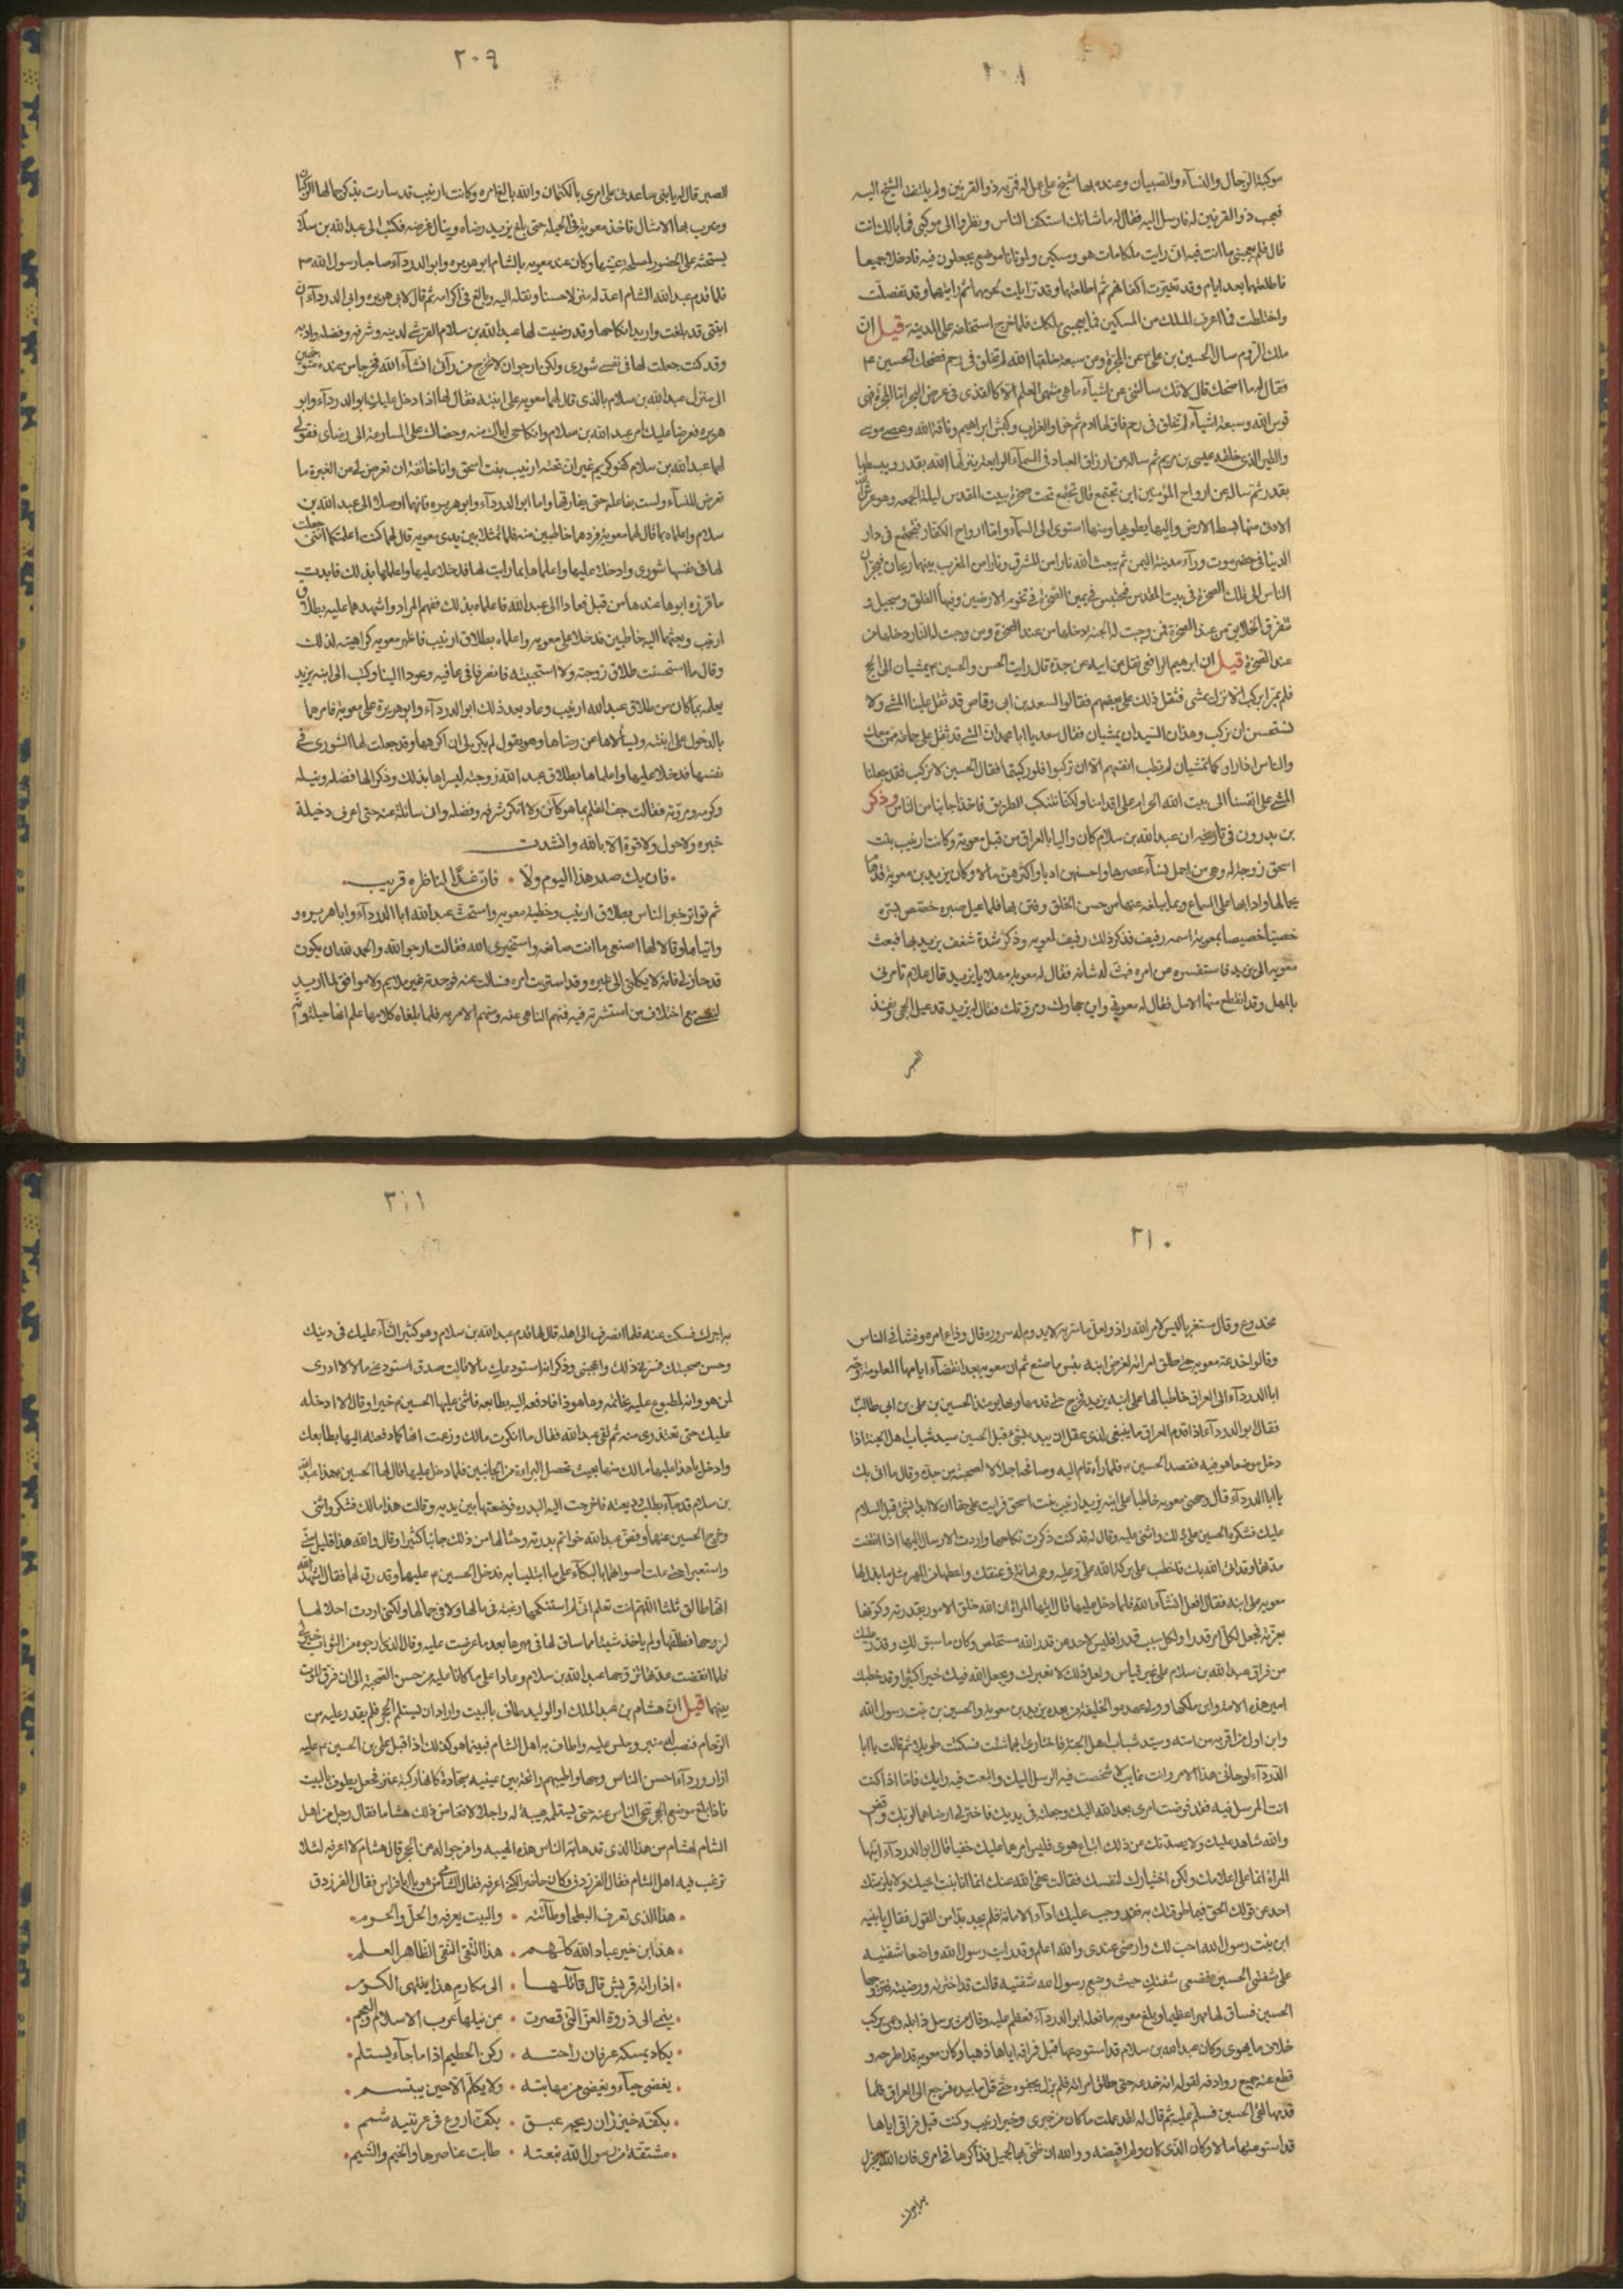 ٢٠٨
موكبة الرجال والنسآء والصبيان وعنده بها شيخ على عمل له فمر به ذو القرنين ولم يلتفت الشيخ اليه
فعجب ذو القرنين له فارسل اليه فقال له ما شانك استكف الناس ونظروا الى موكبى فما بالك انت
قال فلم يعجبنى ما انت فيه انى رايت ملكا مات هو ومسكين ولموتانا موضع يجعلون فيه فادخلا جميعا
فاطلعتهما بعد ايام وقد تغيرت اكفانهم ثم اطلعتهما وقد تزايلت لحومهما ثم رايتهما وقد تفصلت
واختلطت فما اعرف الملك من المسكين فما يعجبنى ملكك فلما خرج استخلفه على المدينة قيل ان
ملك الروم سال الحسين بن على عن المجرة وعن سبعة خلقها الله لم تخلق فى رحم فضحك الحسين ع
فقال له ما اضحكك قال لانك سالتنى عن اشيآء ما هى من منتهى العلم الا كالقذى فى عرض البحر اما المجرة فهى
قوس الله وسبعة اشيآء لم تخلق فى رحم فاولها ادم ثم حوا والغراب وكبش ابراهيم وناقة الله وعصى موسى
والطير الذى خلقه عيسى بن مريم ثم ساله عن ارزاق العباد فى السمآء الرابعة ينزلها الله بقدر ويبسطها
بقدر ثم ساله عن ارواح المؤمنين اين تجتمع قال تجتمع تحت صخرة بيت المقدس ليلة الجمعه وهو عرش الله
الادنى منها بسط الارض واليها يطويها ومنها استوى الى السمآء واما ارواح الكفار فتجتمع فى دار
الدنيا فى حضرموت ورآء مدينة اليمن ثم يبعث الله نارا من المشرق ونارا من المغرب بينهما ريحان فيحشران
الناس الى تلك الصخرة فى بيت المقدس فتحبس فى يمين الصخرة فى تخوم الارضين وفيها الفلق وسجيل و
تفرق الخلايق من عند الصخرة فمن وجبت له الجنة دخلها من عند الصخرة ومن وجبت له النار دخلها من
عند الصخرة قيل ان ابرهيم الرافعى نقل عن ابيه عن جده قال رايت الحسن والحسين ع يمشيان الى الحج
فلم يمرا براكب الا نزل يمشى فثقل ذلك على بعضهم فقالوا لسعد بن ابى وقاص قد ثقل علينا المشى ولا
نستحسن ان نركب وهذان السيدان يمشيان فقال سعد يا ابا محمد ان المشى قد ثقل على جماعة ممن معك
والناس اذا راوكما تمشيان لم تطب انفسهم الا ان تركبوا فلو ركبتما فقال الحسين لا نركب فقد جعلنا
المشى على انفسنا الى بيت الله الحرام على اقدامنا ولكنا نتنكب الطريق فاخذا جانبا من الناس وذكر
بن بدرون فى تاريخه ان عبد الله بن سلام كان واليا بالعراق من قبل معوية وكانت ارينب بنت
اسحق زوجة له وهى من اجمل نسآء عصرها واحسنهن ادبا واكثرهن مالا وكان يزيد بن معوية قد هام
بجمالها وادابها على السماع وبما يبلغه عنها من حسن الخلق وفتن بها فلما عيل صبره خصص بسره
خصيا خصيصا بمعوية اسمه رفيف فذكر ذلك رفيف لمعويه وذكر شدة شغف يزيد بها فبعث
معويه الى يزيد فاستفسره عن امره فبث له شانه فقال له معويه مهلا يا يزيد قال علام تامرنى
بالمهل وقد انقطع منها الامل فقال له معوية واين حجاوك ومروتك فقال له يزيد قد عيل الحجى ونفد
الصبر
٢٠٩
الصبر قال له يا بنى ساعدنى على امرى بالكتمان والله بالغ امره وكانت ارينب قد سارت بذكر جمالها الركبان
وضرب بها الامثال فاخذ معوية فى الحيلة حتى بلغ يزيد رضاه وينال غرضه فكتب الى عبد الله بن سلام
يستحثه على الحضور لمصلحة عينها وكان عند معويه بالشام ابو هريره وابو الدردآء صاحبا رسول الله ص
فلما قدم عبد الله الشام اعد له منزلا حسنا ونقله اليه وبالغ فى اكرامه ثم قال لابى هريره وابى الدردآء ان
ابنتى قد بلغت واريد انكاحها وقد رضيت لها عبد الله بن سلام القرشى لدينه وشرفه وفضله وادبه
وقد كنت جعلت لها فى نفسها شورى ولكن ارجوان لا تخرج من رآئى انشآء الله فخرجا من عنده متوجهين
الى منزل عبد الله بن سلام بالذى قال لهما معويه على ابنته فقال لها اذا دخل عليك ابو الدردآء وابو
هريره فعرضا عليك امر عبد الله بن سلام وانكاحى اياك منه وحضاك على المسارعة الى رضاى فقولى
لهما عبد الله بن سلام كفو كريم غير ان تحته ارينب بنت اسحق وانا خائفة ان تعرض لى من الغيرة ما
تعرض للنسآء ولست بفاعلة حتى يفارقها واما ابو الدردآء وابو هريره فانهما وصلا الى عبد الله بن
سلام واعلماه بما قال لهما معوية فردهما خاطبين منه فلما تمثلا بين يدى معويه قال لهما كنت اعلمتكما اننى جعلت
لها فى نفسها شورى وادخلا عليها واعلماها بما رايت لها فدخلا عليها واعلماها بذلك فابدت
ما قرره ابوها عندها من قبل فعادا الى عبد الله فاعلماه بذلك ففهم المراد واشهدهما عليه بطلاق
ارينب وبعثهما اليه خاطبين فدخلا على معويه واعلماه بطلاق ارينب فاظهر معويه كراهيته لذلك
وقال ما استحسنت طلاق زوجته ولا استحببته فانصرفا فى عافيه وعودا الينا وكتب الى ابنه يزيد
يعلمه بما كان من طلاق عبد الله ارينب وعاد بعد ذلك ابو الدردآء وابو هريرة على معوية فامرهما
بالدخول على ابنته وبسألاها عن رضاها وهو يقول لم يكن لى ان اكرهها وقد جعلت لها الشورى فى
نفسها فدخلا عليها واعلماها بطلاق عبد الله زوجته ليسرها بذلك وذكرا لها فضله ونبله
وكرمه ومروته فقالت جف القلم بما هو كآئن ولا انكر شرفه وفضله وانى سائلة عنه حتى اعرف دخيلة
خبره ولا حول ولا قوة الا بالله وانشدت
فان يك صدر هذا اليوم ولى • فان غدا لناظره قريب
ثم تواتر خبر الناس بطلاق ارينب وخطبة معويه واستحث عبد الله ابا الدردآء وابا هريره و
واتياها وقالا لها اصنعى ما انت صانعه واستخيرى الله فقالت ارجو الله والحمد لله ان يكون
قد خار لى فانه لا يكلنى الى غيره وقد استربت امره فسالت عنه فوجدته غير ملايم ولا موافق لما اريد
لنفسى مع اختلاف من استشرته فيه فمنهم الناهى عنه ومنهم الامر به فلما بلغاه كلامها علم انها حيله وانه
٢١٠
مخدوع وقال متعزيا ليس لامر الله راد ولعل ما سر به لا يدوم له سروره قال وذاع امره وفشا فى الناس
وقالوا خدعه معويه حتى طلق امراته لغرض ابنه بئس ما صنع ثم ان معويه بعد انقضآء ايامها المعلومة وجه
ابا الدردآء الى العراق خاطبا لها على ابنه يزيد فخرج حتى قدمها وبها يومئذ الحسين بن على بن ابى طالب ع
فقال ابو الدردآء اذا قدم العراق ما ينبغى لذى عقل ان يبدء بشئ قبل الحسين سيد شباب اهل الجنة اذا
دخل موضعا هو فيه فقصد الحسين ع فلما رآه قام اليه وصافحه اجلالا لصحبته من جده وقال ما اتى بك
يا ابا الدردآء قال وجهنى معويه خاطبا على ابنه يزيد ارينب بنت اسحق فرايت على حقا ان لا ابدا بشئ قبل السلام
عليك فشكره الحسين على ذلك واثنى عليه وقال له قد كنت ذكرت نكاحها واردت الارسال اليها اذا انقضت
عدتها وقد اتى الله بك فاخطب على بركة الله على وعليه وهى امانة فى عنقك واعطها من المهر مثل ما بذل لها
معويه على ابنه فقال افعل انشآء الله فلما دخل عليها قال ايتها المراة ان الله خلق الامور بقدرته وكونها
بعزته فجعل لكل امر قدرا ولكل سبب قدرا فليس لاحد عن قدر الله مستخلص وكان ما سبق لك وقدر عليك
من فراق عبد الله بن سلام على غير قياس ولعل ذلك لا يضرك ويجعل الله فيك خيرا كثيرا وقد خطبك
امير هذه الامة وابن ملكها وولى عهده والخليفة من بعده يزيد بن معوية والحسين بن بنت رسول الله
وابن اول من اقر به من امته وسيد شباب اهل الجنة فاختارى ايهما شئت فسكتت طويلا ثم قالت يا ابا
الدردآء لو جائنى هذا الامر وانت غايب لاشخصت فيه الرسل اليك واتبعت فيه رايك فاما اذا كنت
انت المرسل فيه فقد فوضت امرى بعد الله اليك وجعلته فى يديك فاختر لى ارضاهما لربك
والله شاهد عليك ولا يصدنك عن ذلك اتباع هوى فليس امرهما عليك خفيا قال ابو الدردآء ايتها
المراة انما على اعلامك ولكن اختيارك لنفسك فقالت عفى الله عنك انما انا بنت اخيك ولا يلزمنك
احد عن قولك الحق فيما طوقتك به فقد وجب عليك ادآء الامانة فلم يجد بدا من القول فقال يا بنيه
ابن بنت رسول الله احب لك وارضى عندى والله اعلم وقد رايت رسول الله واضعا شفتيه
على شفتى الحسين فضعى شفتك حيث وضع رسول الله شفتيه قالت قد اخترته ورضيته فتزوجها
الحسين فساق لها مهرا عظيما وبلغ معويه ما فعله ابو الدردآء فعظم عليه وقال من يرسل ذا بله وعمى يركب
خلاف ما يهوى وكان عبد الله بن سلام قد استودعها قبل فراقه اياها ذهبا وكان معويه قد اطرحه و
قطع عنه جميع روادفه لقوله انه خدعه حتى طلق امراته فلم يزل يجفوه حتى قل ما بيده فرجع الى العراق فلما
قدمها لقى الحسين فسلم عليه ثم قال له لقد علمت ما كان من خبرى وخبر ارينب وكنت قبل فراقى اياها
قد استودعتها مالا وكان الذى كان ولم اقبضه ووالله ان ظنى بها الجميل فذاكرها فى امرى فان الله يجزل
به اجرك
٢١١
به اجرك فسكت عنه فلما انصرف الى اهله قال لها قدم عبد الله بن سلام وهو كثير الثنآء عليك فى دينك
وحسن صحبتك فسرنى ذلك واعجبنى وذكر انه استودعك مالا قالت صدق استودعنى مالا لا ادرى
لمن هو وانه لمطبوع عليه بخاتمه وها هو ذا فادفعه اليه بطابعه فاثنى عليها الحسين ع خيرا وقال الا ادخله
عليك حتى تعتذرى منه ثم لقى عبد الله فقال ما انكرت مالك وزعمت انها كما دفعته اليها بطابعك
وادخل يا هذا عليها مالك منها بحيث تحصل البراءة من الجانبين فلما دخل عليها قال لها الحسين ع هذا عبد الله
بن سلام قد جآء يطلب وديعته فاخرجت اليه البدره فوضعتها بين يديه وقالت هذا مالك فشكر واثنى
وخرج الحسين عنهما وفض عبد الله خواتم بدرته وحثا لها من ذلك جانبا كثيرا وقال والله هذا قليل منى
واستعبرا حتى علت اصواتهما بالبكآء على ما ابتليا به فدخل الحسين ع عليهما وقد رق لهما فقال اشهد الله
انها طالق ثلثا اللهم انت تعلم انى لم استنكحها رغبة فى مالها ولا فى جمالها ولكنى اردت احلالها
لزوجها فطلقها ولم ياخذ شيئا مما ساق لها فى مهرها بعد ما عرضت عليه وقال الذى ارجوه من الثواب خير لى
فلما انقضت عدتها تزوجها عبد الله بن سلام وعادا على ما كانا عليه من حسن الصحبة الى ان فرق الموت
بينهما قيل ان هشام بن عبد الملك او الوليد طاف بالبيت واراد ان يستلم الحجر فلم يقدر عليه من
الزحام فنصب له منبر وجلس عليه واطاف به اهل الشام فبينما هو كذلك اذ اقبل على بن الحسين ع عليه
ازار وردآء احسن الناس وجها واطيبهم رائحة بين عينيه سجادة كانها ركبة عنز فجعل يطوف بالبيت
فاذا بلغ موضع الحجر تنحى الناس عنه حتى يستلمه هيبة له واجلالا فغاض ذلك هشاما فقال رجل من اهل
الشام لهشام من هذا الذى قد هابه الناس هذه الهيبه وافرجوا له عن الحجر قال هشام لا اعرفه لئلا
ترغب فيه اهل الشام فقال الفرزدق وكان حاضرا لكنى اعرفه فقال الشامى من هو يا ابا فراس فقال الفرزدق
هذا الذى تعرف البطحا وطأته • والبيت يعرفه والحل والحرم
هذا ابن خير عباد الله كلهم • هذا التقى النقى الطاهر العلم
اذا راته قريش قال قآئلها • الى مكارم هذا ينتهى الكرم
ينمى الى ذروة العز التى قصرت • عن نيلها عرب الاسلام والعجم
يكاد يمسكه عرفان راحته • ركن الحطيم اذا ما جآء يستلم
يغضى حيآء ويغضى من مهابته • ولا يكلم الا حين يبتسم
بكفه خيزران ريحه عبق • بكف اروع فى عرنينه شمم
مشتقة من رسول الله نبعته • طابت عناصرها والخيم والشيم